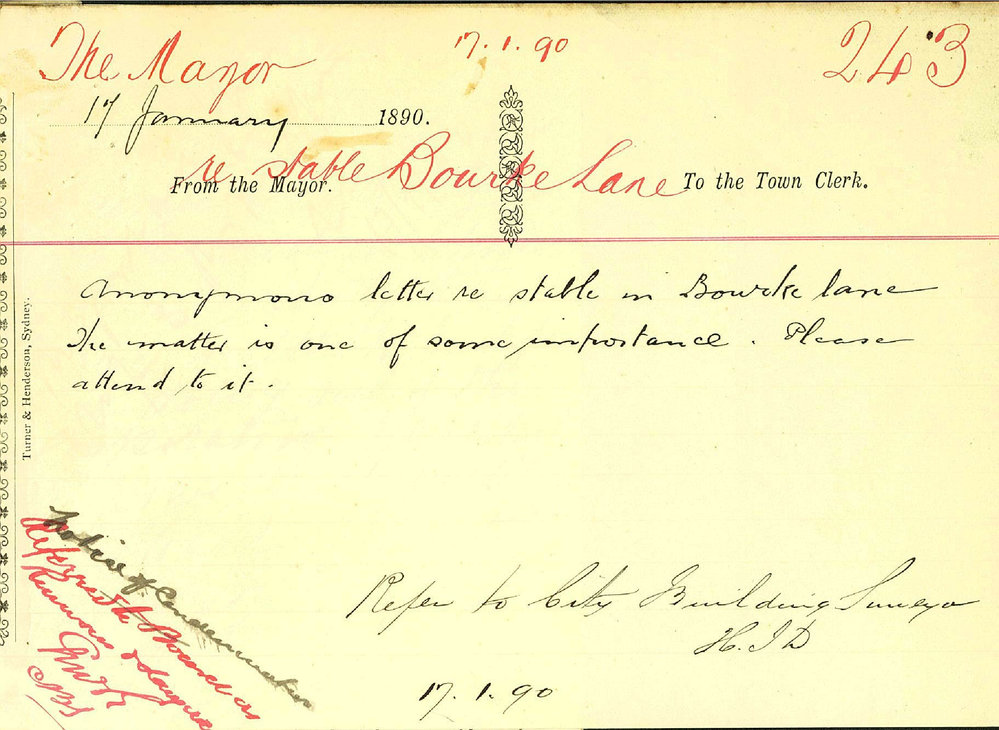 The Mayor
17.1.90
243
17 January 1890.
re stable Bourke Lane
From the Mayor.
To the Town Clerk.
Anonymous letter re stable in Bourke lane
The matter is one of some importance. Please
attend to it.
Refer to City Building Surveyor
H.J.D
17.1.90
Notice of Condemnation
Referred to Board as
Ruinous & dangerous
CBS
Turner & Henderson, Sydney.